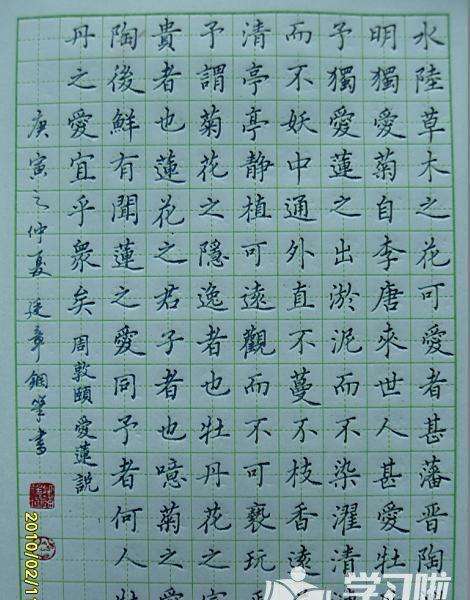 水陸草木之花可愛者甚藩晉陶
明獨愛菊自李唐來世人甚愛牡
予獨愛蓮之出淤泥而不染濯清
而不妖中通外直不蔓不枝香遠
清亭亭静植可遠觀而不可褻玩
予謂菊花之隱逸者也牡丹花之
貴者也蓮花之君子者也噫菊之
陶後鮮有聞蓮之愛同予者何人
丹之愛宜乎衆矣 周敦頤愛蓮説
庚寅之仲夏延章鋼筆書
2010/02/1
学习啦